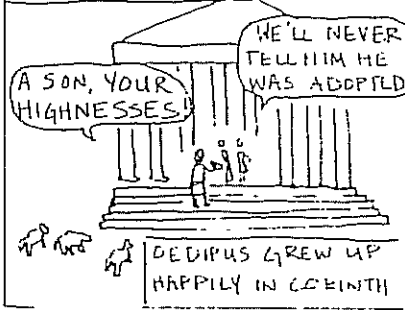 A SON, YOUR
HIGHNESSES!
WE'LL NEVER
TELL HIM HE
WAS ADOPTED
OEDIPUS GREW UP
HAPPILY IN CORINTH